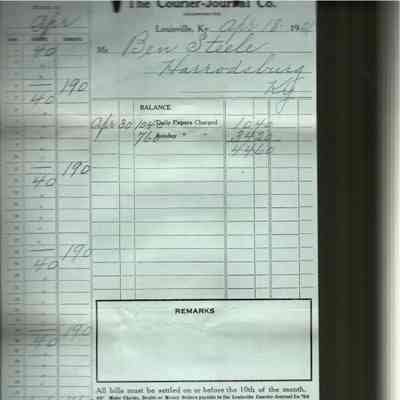 The Courier-Journal Co.
Louisville, Ky. Apr 18 19
Mr. Ben Steele
Harrodsburg
Ky
BALANCE
Apr 30 1040 Daily Papers Charged 1040
760 Sunday " " 3420
4460
REMARKS
All bills must be settled on or before the 10th of the month.
Make Checks, Drafts or Money Orders payable to the Louisville Courier-Journal Co.
Apr
40
190
40
190
40
190
40
190
40